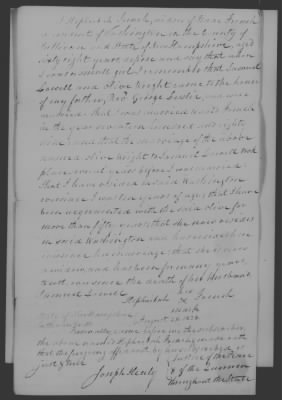 I Hephzibah French, widow of Isaac French
a resident of Washington in the County of
Sullivan and State of New Hampshire, aged
Sixty eight years, depose and say that when
I was a small girl I remember that Samuel
Lowell and Olive Wright came to the house
of my father, Rev. George Lesslie, and were
married. That I was married to Mr French
in the year seventeen hundred and eighty
and that the marriage of the above
named Olive Wright to Samuel Lowell took
place several years before I was married
That I have resided in said Washington
ever since I was ten years of age, that I have
been acquainted with the said Olive for
more than fifty years, that she now resides
in said Washington and has resided here
ever since her marriage, that she is now
a widow and has been for many years
past ever since the death of her Husband
Samuel Lowell.
Hephzibah her X mark French
State of New Hampshire
Sullivan ss August 28. 1838
Personally came before me the subscriber,
the above named Hephzibah French, made oath
that the foregoing affidavit by her subscribed is
just & true
Joseph Healy Justice of the Peace
& of the Quorum
throughout the State